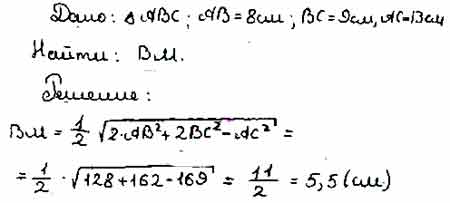 Дано: Δ ABC; AB = 8см; BC = 9см, AC = 13см
Найти: BM.
Решение:
BM = 1/2 √(2·AB² + 2BC² - AC²) =
= 1/2 · √(128 + 162 - 169) = 11/2 = 5,5 (см)